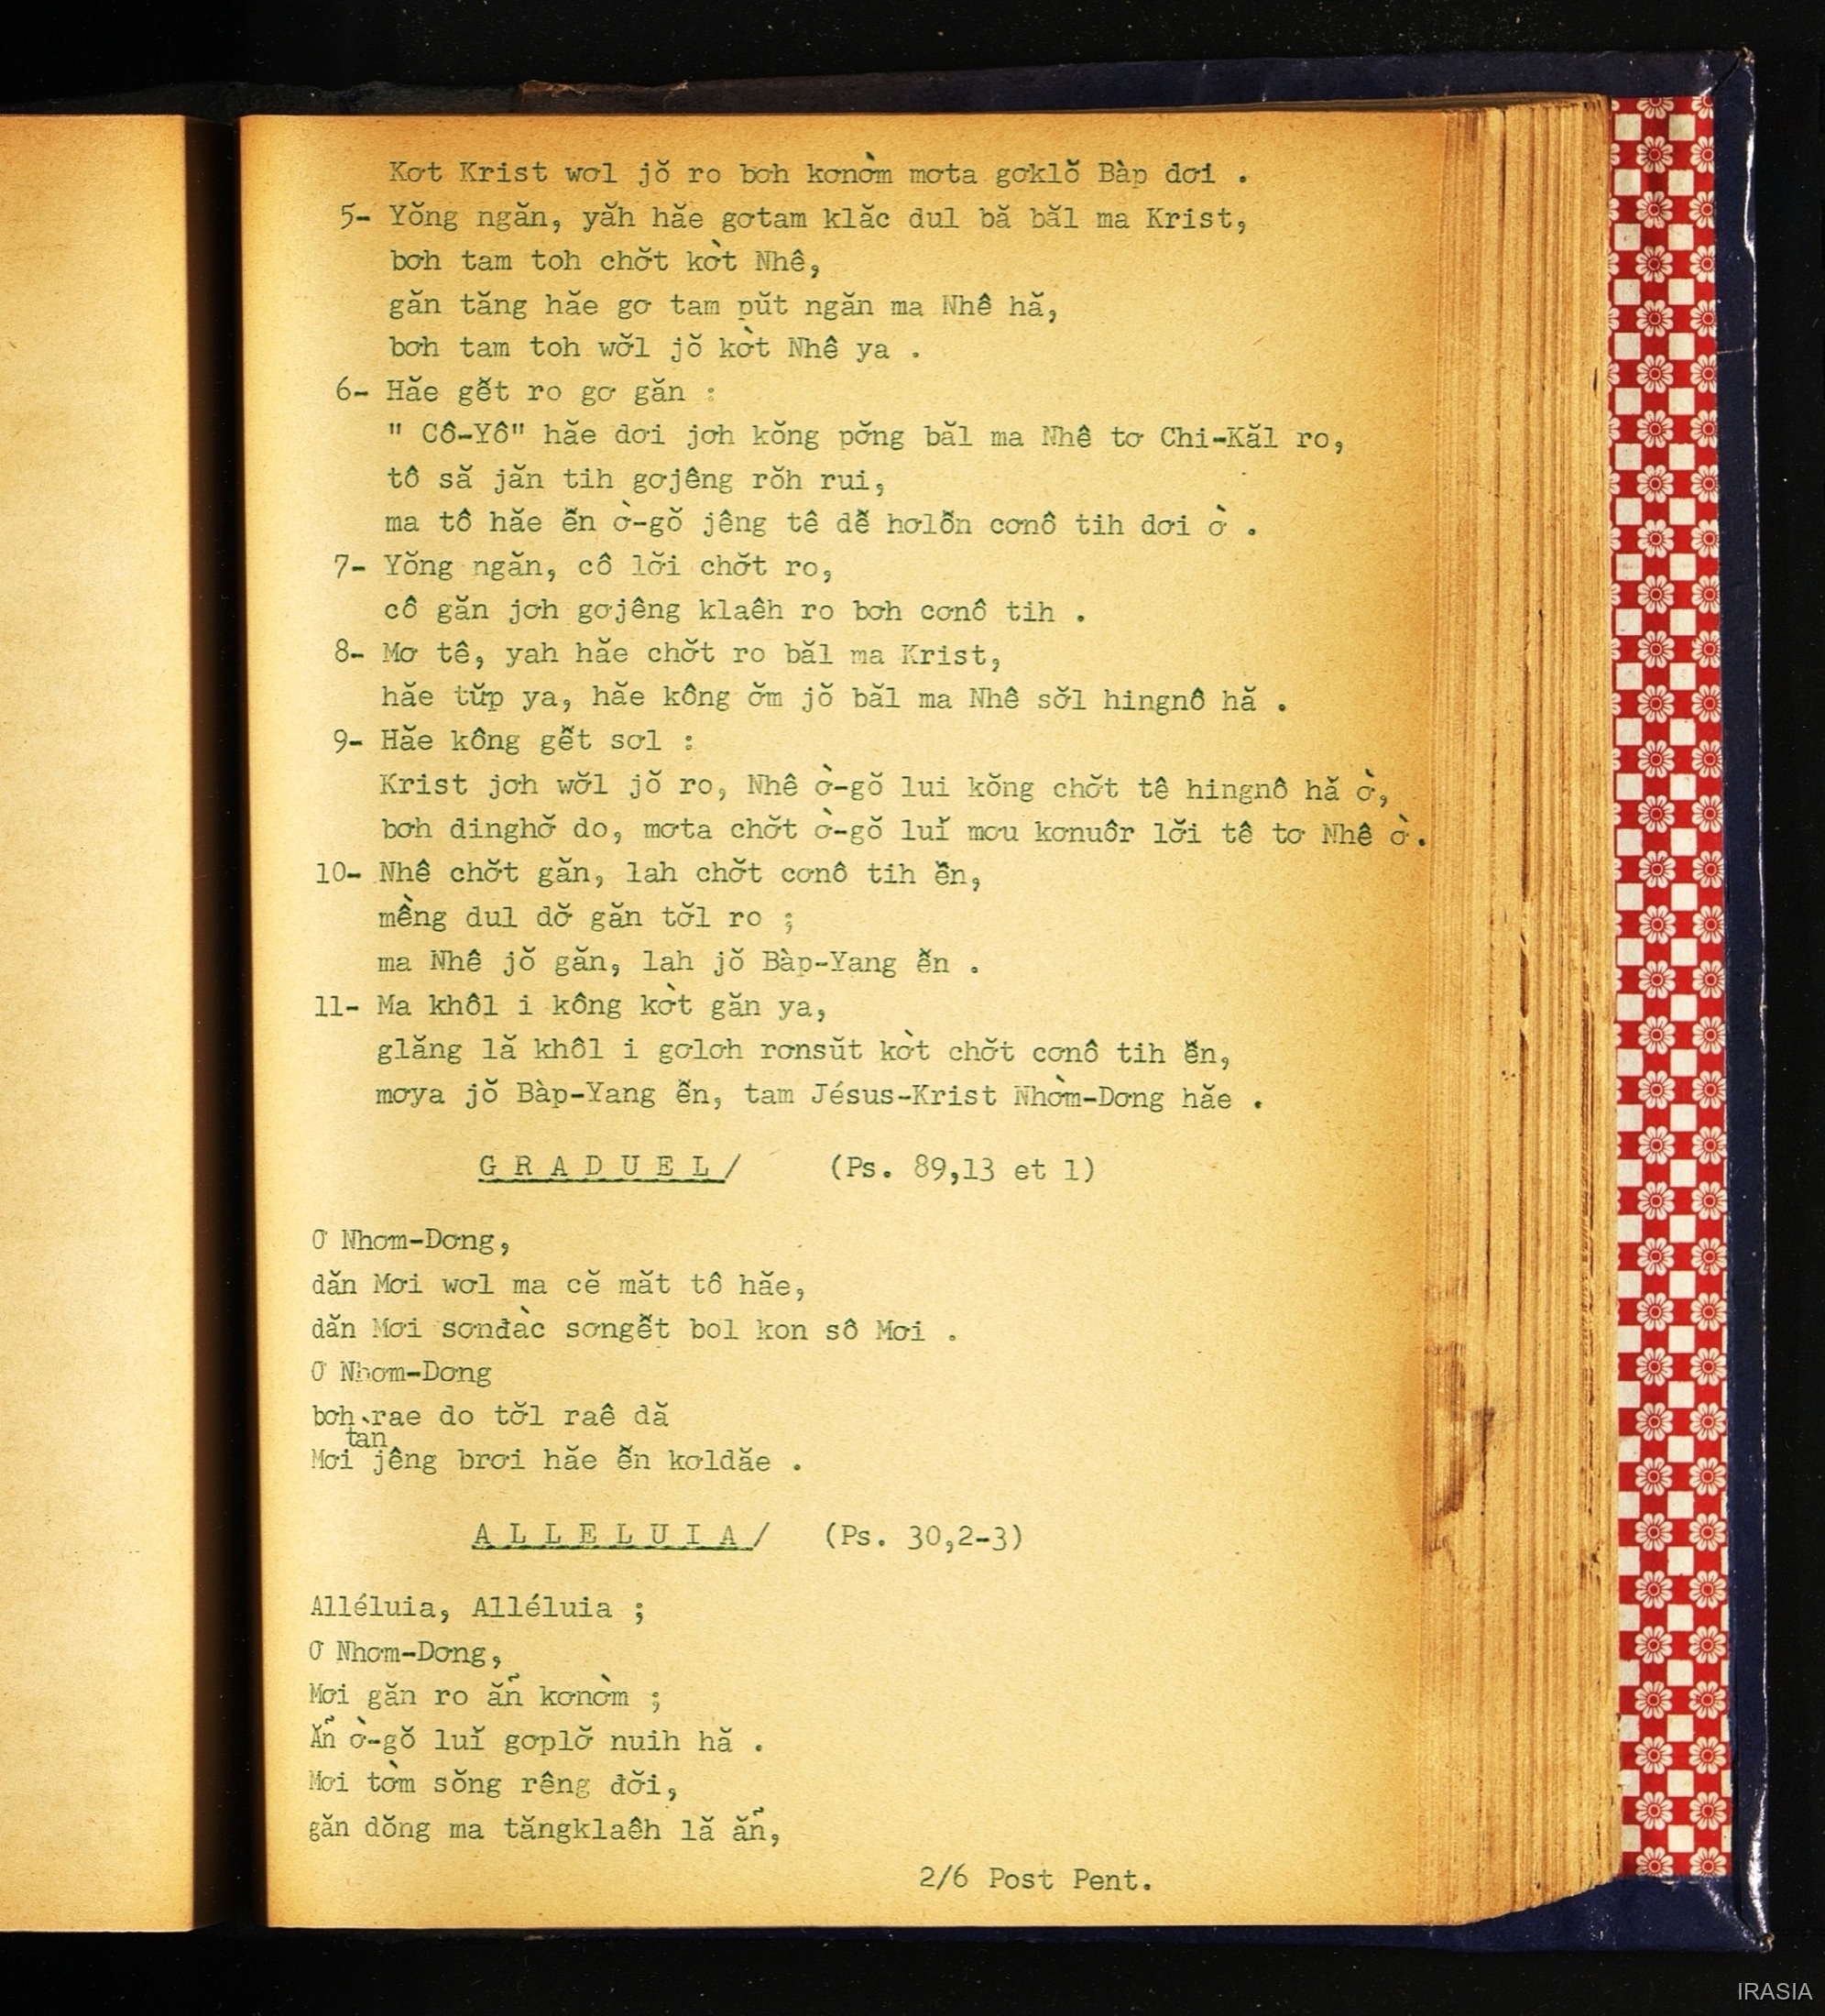 Kơt Krist wơl jŏ ro bơh kơnờm mơta gơklŏ Bàp dơi .
5- Yŏng ngăn, yăh hăe gơtam klăc dul bă băl ma Krist,
bơh tam toh chơ̆t kờt Nhê,
găn tăng hăe gơ tam pŭt ngăn ma Nhê hă,
bơh tam toh wơ̆l jŏ kờt Nhê ya .
6- Hăe gê̆t ro gơ găn :
" Cô-Yô" hăe dơi jơh kŏng pơ̆ng băl ma Nhê tơ Chi-Kăl ro,
tô să jăn tih gơjêng rŏh rui,
ma tô hăe ê̆n ờ-gŏ jêng tê dê̆ hơlô̆n cơnô tih dơi ờ .
7- Yŏng ngăn, cô lơ̆i chơ̆t ro,
cô găn jơh gơjêng klaêh ro bơh cơnô tih .
8- Mơ tê, yah hăe chơ̆t ro băl ma Krist,
hăe tư̆p ya, hăe kông ơ̆m jŏ băl ma Nhê sơ̆l hingnô hă .
9- Hăe kông gê̆t sơl :
Krist jơh wơ̆l jŏ ro, Nhê ờ-gŏ lui kŏng chơ̆t tê hingnô hă ờ,
bơh dinghơ̆ do, mơta chơ̆t ờ-gŏ luĭ mơu kơnuôr lơ̆i tê tơ Nhê ờ.
10- Nhê chơ̆t găn, lah chơ̆t cơnô tih ê̆n,
mềng dul dơ̆ găn tơ̆l ro ;
ma Nhê jŏ găn, lah jŏ Bàp-Yang ê̆n .
11- Ma khôl i kông kờt găn ya,
glăng lă khôl i gơlơh rơnsŭt kờt chơ̆t cơnô tih ê̆n,
mơya jŏ Bàp-Yang ê̆n, tam Jésus-Krist Nhờm-Dơng hăe .
G R A D U E L/ (Ps. 89,13 et 1)
Ơ Nhơm-Dơng,
dăn Mơi wơl ma cĕ măt tô hăe,
dăn Mơi sơnđàc sơngê̆t bol kon sô Mơi .
Ơ Nhơm-Dơng
bơh rae do tơ̆l raê dă
tan
Mơi jêng brơi hăe ê̆n kơldăe .
A L L E L U I A/ (Ps. 30,2-3)
Alléluia, Alléluia ;
Ơ Nhơm-Dơng,
Mơi găn ro ăñ kơnờm ;
Ăñ ờ-gŏ luĭ gơplơ̆ nuih hă .
Mơi tờm sŏng rêng đơ̆i,
găn dŏng ma tăngklaêh lă ăñ,
2/6 Post Pent.
IRASIA